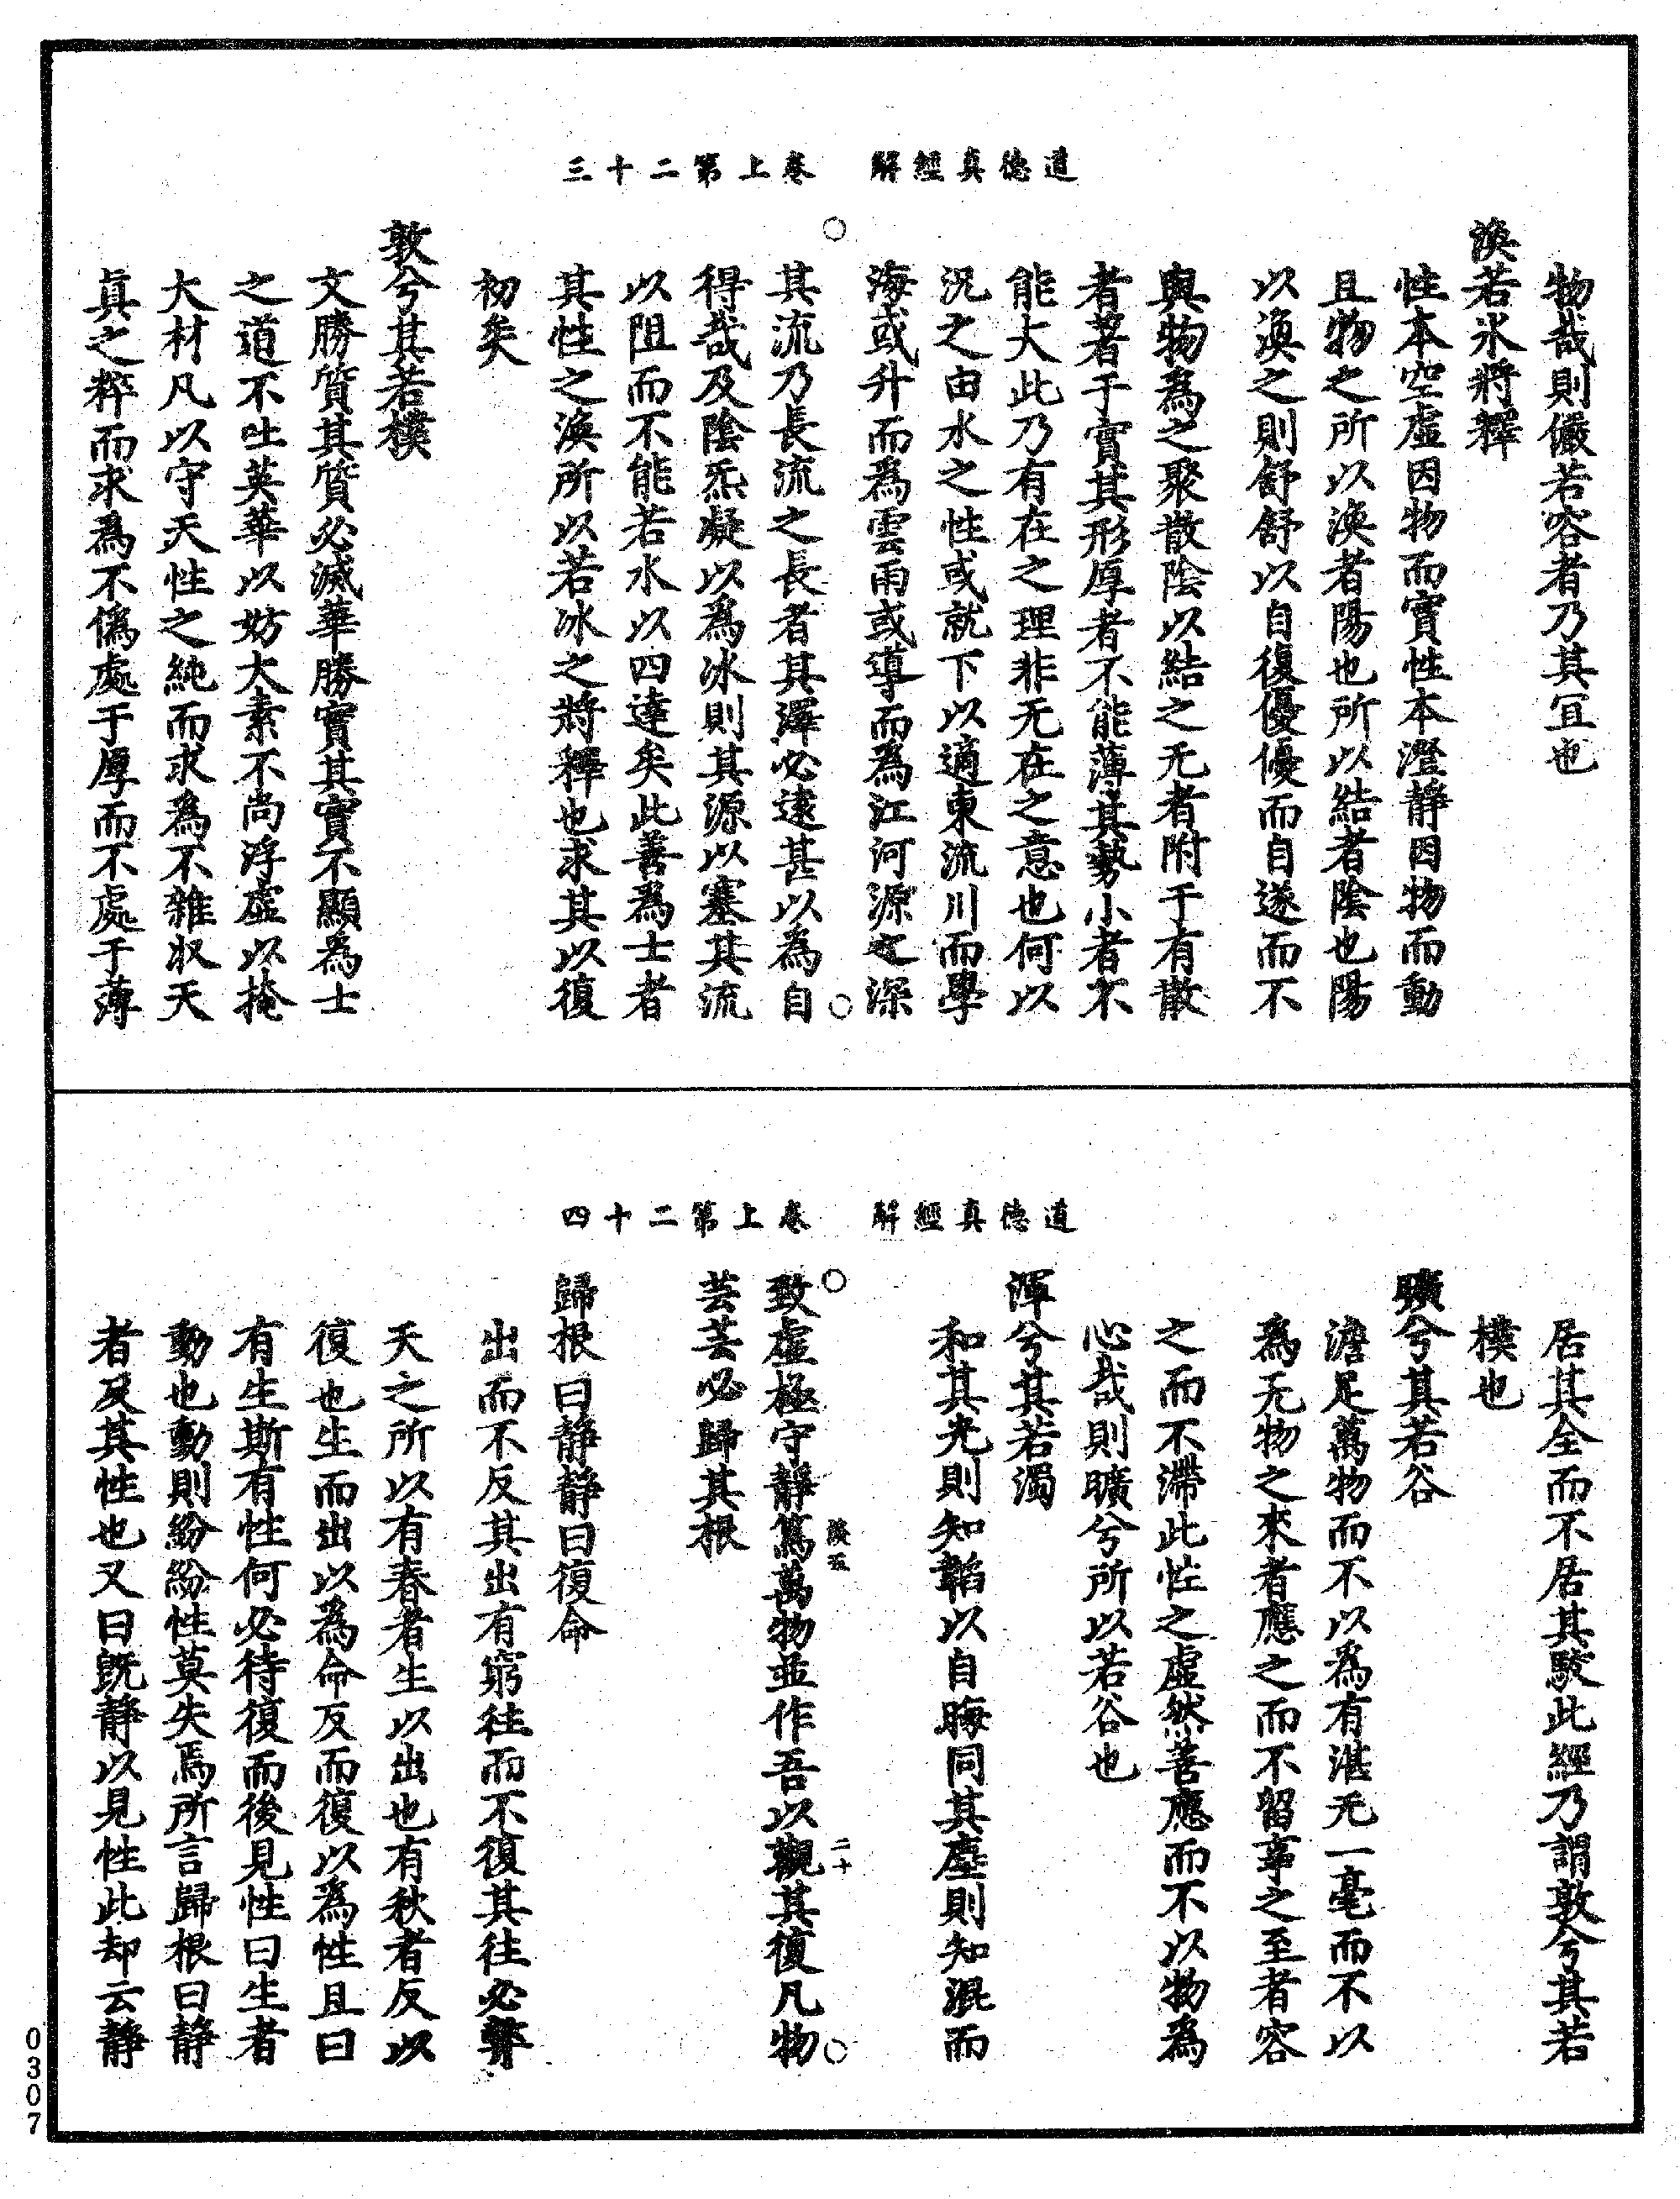 道德真經解　卷上第二十三
物哉則儼若容者乃其宜也
渙若氷將釋
性本空虛因物而實性本澄靜因物而動
且物之所以渙者陽也所以結者陰也陽
以渙之則舒舒以自復優優而自遂而不
與物為之聚散陰以結之无者附于有散
者著于實其形厚者不能薄其勢小者不
能大此乃有在之理非无在之意也何以
況之由水之性或就下以適東流川而學
海或升而爲雲雨或導而爲江河源之深
其流乃長流之長者其澤必遠甚以為自
得哉及陰炁凝以爲冰則其源以塞其流
以阻而不能若水以四達矣此善爲士者
其性之渙所以若冰之將釋也求其以復
初矣
敦兮其若樸
文勝質其質必滅華勝實其實不顯為士
之道不吐英華以妨大素不尚浮虛以掩
大材凡以守天性之純而求爲不雜収天
真之粹而求爲不僞處于厚而不處于薄
道德真經解　卷上第二十四
居其全而不居其駁此經乃謂敦兮其若
樸也
曠兮其若谷
澹足萬物而不以爲有湛无一毫而不以
爲无物之來者應之而不留事之至者容
之而不滯此性之虛然善應而不以物爲
心哉則曠兮所以若谷也
渾兮其若濁
和其光則知韜以自晦同其塵則知混而
致虛極守靜篤萬物並作吾以觀其復凡物
談五　二十
芸芸必歸其根
歸根曰静静曰復命
出而不反其出有窮往而不復其往必弊
天之所以有春者生以出也有秋者反以
復也生而出以為命反而復以為性且曰
有生斯有性何必待復而後見性曰生者
動也動則紛紛性莫失焉所言歸根曰静
者及其性也又曰既静以見性此却云静
0307